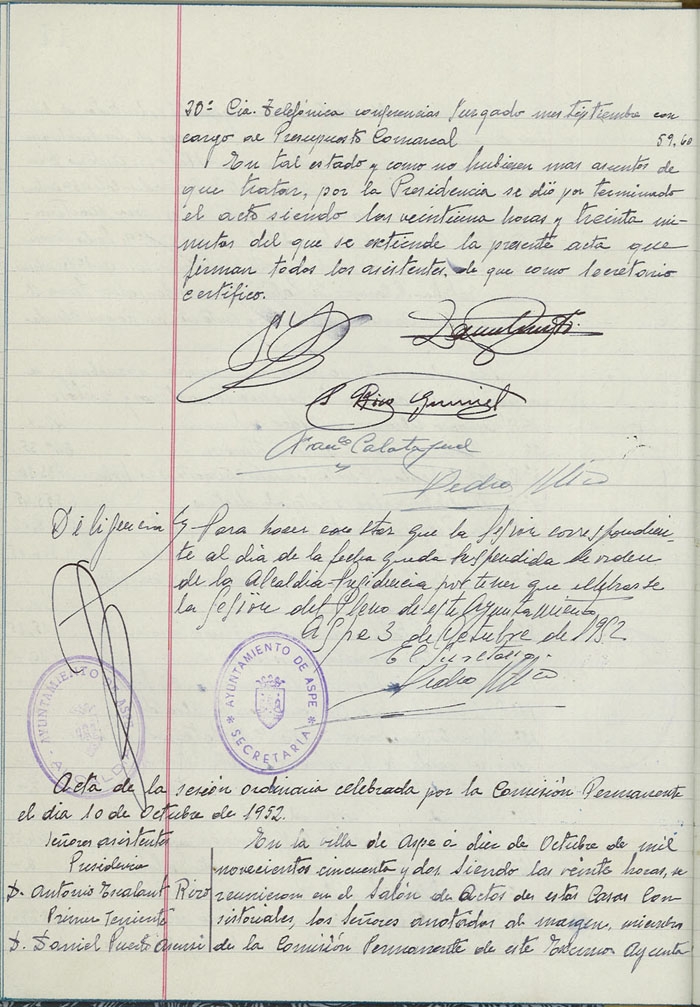 30º Cia. Telefónica conferencias Juzgado mes Septiembre con
cargo al Presupuesto Comarcal 59,60
En tal estado y como no hubieren mas asuntos de
que tratar, por la Presidencia se dió por terminado
el acto siendo las veintiuna horas y treinta mi-
nutos del que se extiende la presente acta que
firman todos los asistentes, de que como Secretario
certifico.
Franco Calatayud
Pedro
Diligencia Para hacer constar que la Sesión correspondien-
te al dia de la fecha queda suspendida de orden
de la Alcaldia-Presidencia por tener que celebrarse
la Sesión del Pleno de este Ayuntamiento,
Aspe 3 de Octubre de 1952
El Secretario.
Pedro
AYUNTAMIENTO DE ASPE
ALCALDIA
AYUNTAMIENTO DE ASPE
SECRETARIA
Acta de la sesión ordinaria celebrada por la Comisión Permanente
el dia 10 de Octubre de 1952.
Señores asistentes
Presidencia
D. Antonio Escalant Rizo
Primer Teniente
D. Daniel Puerto Asensi
En la villa de Aspe a diez de Octubre de mil
novecientos cincuenta y dos siendo las veinte horas, se
reunieron en el Salón de Actos de estas Casas Con-
sistoriales, los Señores anotados al margen, miembros
de la Comisión Permanente de este Excmo Ayunta-